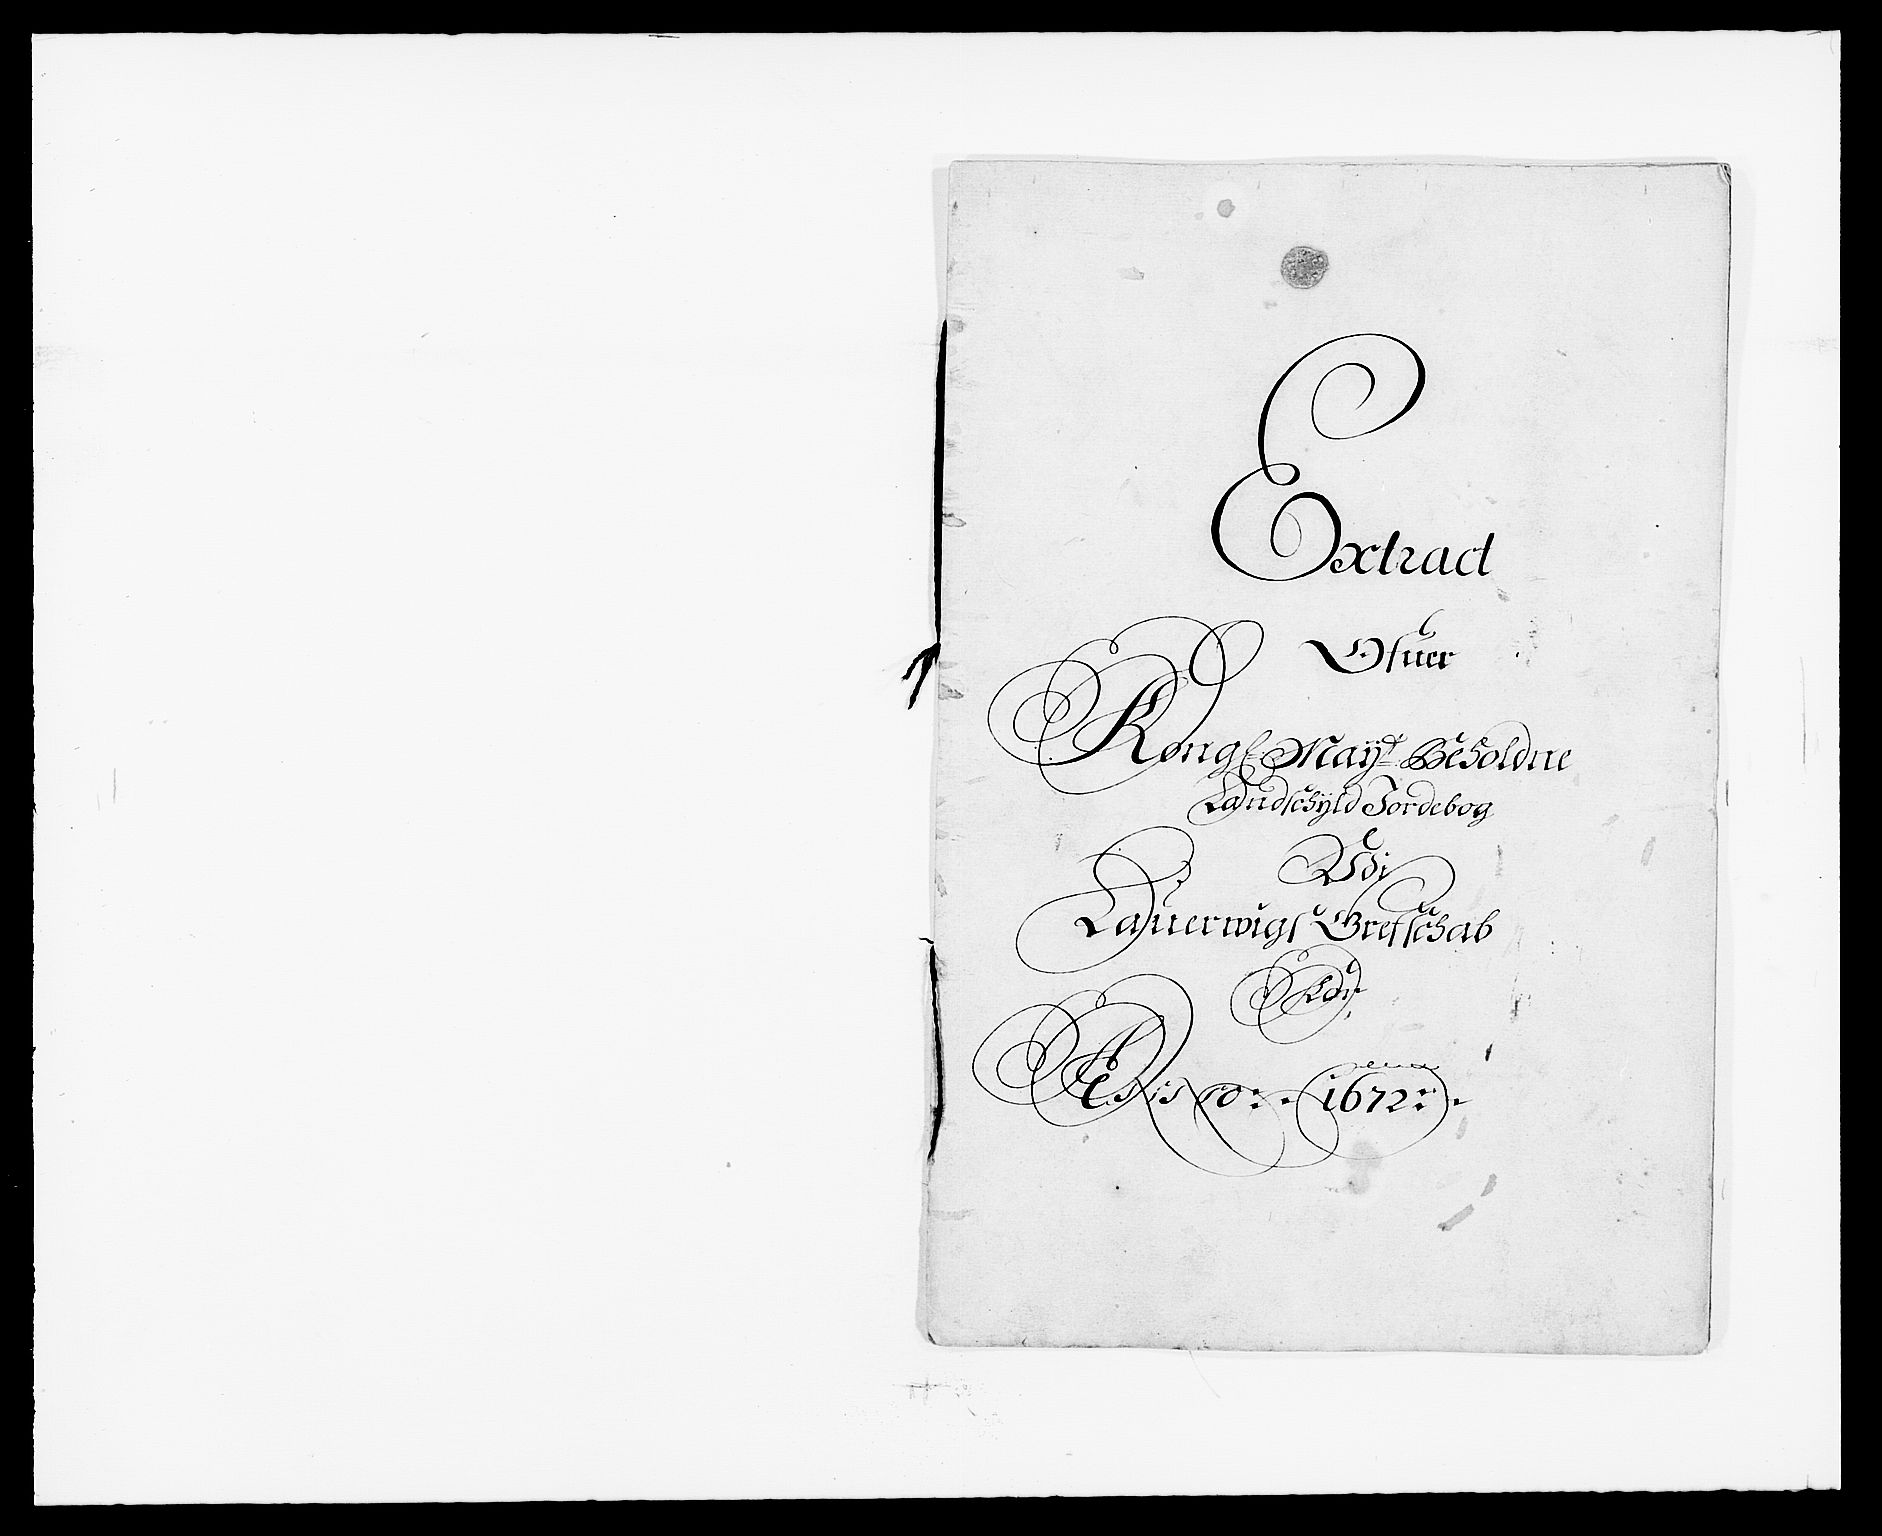 Extract
Ofuer
Kongl: Maÿtz Beholdne
Landschÿld Jordebog
Udi
Lauerwigs Grefschab
For
1672: